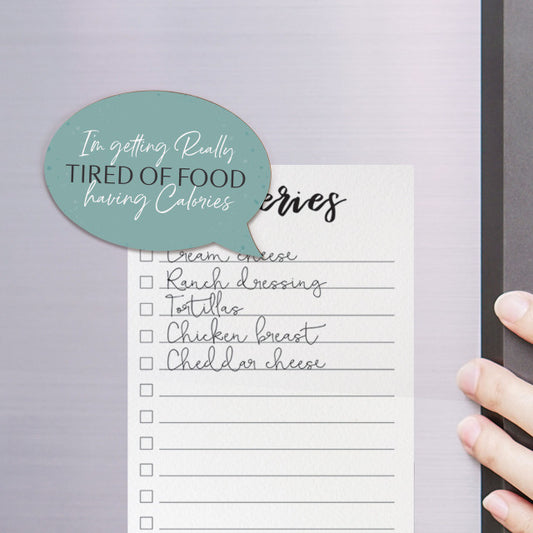 I'm getting Really
TIRED OF FOOD
having Calories
eries
Cream cheese
Ranch dressing
Tortillas
Chicken breast
Cheddar cheese